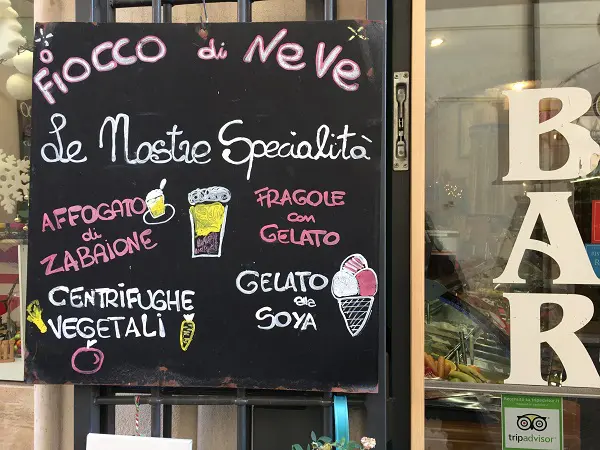 FIOCCO di NEVE
Le Nostre Specialità
AFFOGATO
di
ZABAIONE
FRAGOLE
con
GELATO
CENTRIFUGHE
VEGETALI
GELATO
alla
SOYA
BAR
tripadvisor